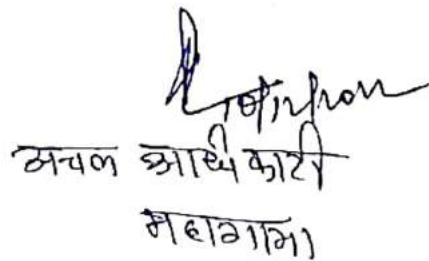 अंचल अधिकारी
महागामा